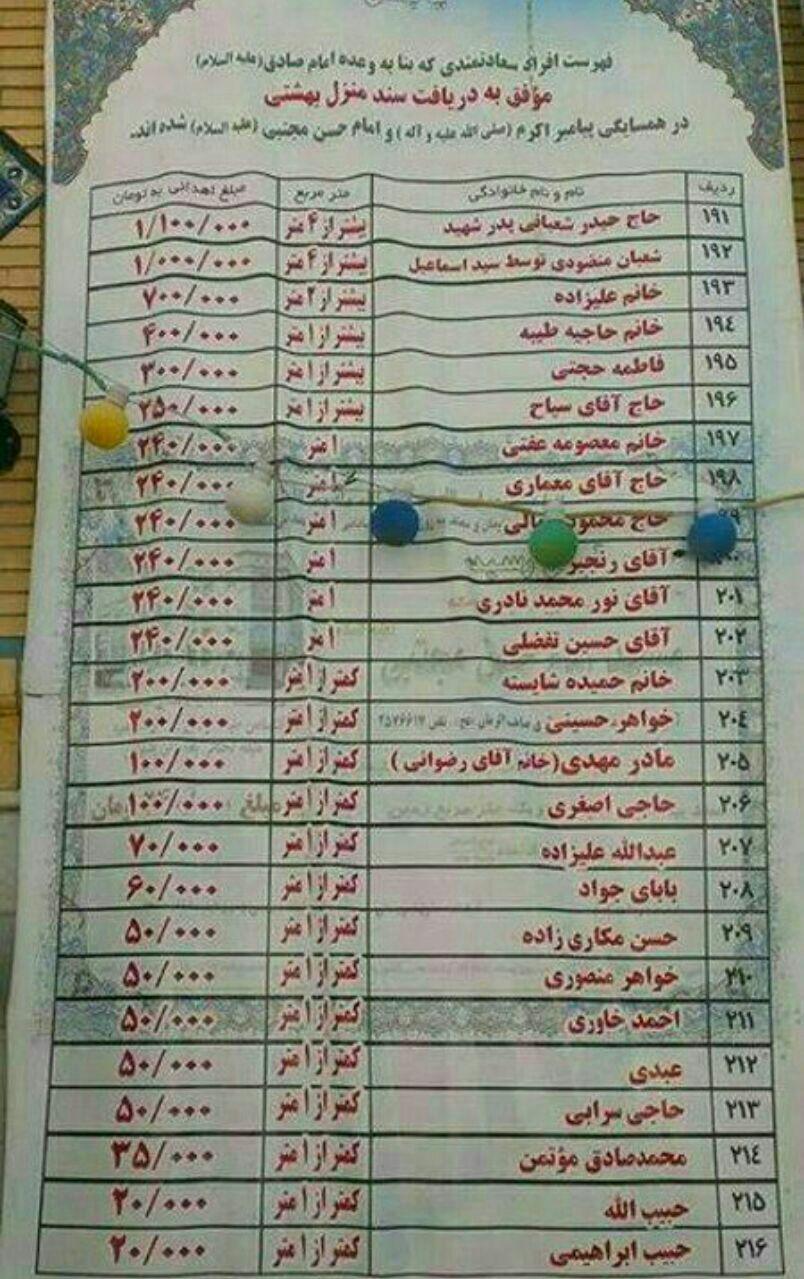 فهرست افراد سعادتمندی که بنا به وعده امام صادق (علیه السلام)
موفق به دریافت سند منزل بهشتی
در همسایگی پیامبر اکرم (صلی الله علیه و آله) و امام حسن مجتبی (علیه السلام) شده اند.
ردیف نام و نام خانوادگی متر مربع مبلغ اهدائی به تومان
۱۹۱ حاج حیدر شعبانی پدر شهید بیشتر از ۴ متر ۱/۱۰۰/۰۰۰
۱۹۲ شعبان منضودی توسط سید اسماعیل بیشتر از ۴ متر ۱/۰۰۰/۰۰۰
۱۹۳ خانم علیزاده بیشتر از ۲ متر ۷۰۰/۰۰۰
۱۹٤ خانم حاجیه طیبه بیشتر از ۱ متر ۴۰۰/۰۰۰
۱۹۵ فاطمه حجتی بیشتر از ۱ متر ۳۰۰/۰۰۰
۱۹۶ حاج آقای سیاح بیشتر از ۱ متر ۲۵۰/۰۰۰
۱۹۷ خانم معصومه عفتی ۱ متر ۲۴۰/۰۰۰
۱۹۸ حاج آقای معماری ۱ متر ۲۴۰/۰۰۰
حاج محمود ۱ متر ۲۴۰/۰۰۰
آقای ۱ متر ۲۴۰/۰۰۰
۲۰۱ آقای نور محمد نادری ۱ متر ۲۴۰/۰۰۰
۲۰۲ آقای حسین تفضلی ۱ متر ۲۴۰/۰۰۰
۲۰۳ خانم حمیده شایسته کمتر از ۱ متر ۲۰۰/۰۰۰
۲۰٤ خواهر حسینی کمتر از ۱ متر ۲۰۰/۰۰۰
۲۰۵ مادر مهدی (خانم آقای رضوانی) کمتر از ۱ متر ۱۰۰/۰۰۰
۲۰۶ حاجی اصغری کمتر از ۱ متر ۱۰۰/۰۰۰
۲۰۷ عبدالله علیزاده کمتر از ۱ متر ۷۰/۰۰۰
۲۰۸ بابای جواد کمتر از ۱ متر ۶۰/۰۰۰
۲۰۹ حسن مکاری زاده کمتر از ۱ متر ۵۰/۰۰۰
۲۱۰ خواهر منصوری کمتر از ۱ متر ۵۰/۰۰۰
۲۱۱ احمد خاوری کمتر از ۱ متر ۵۰/۰۰۰
۲۱۲ عبدی کمتر از ۱ متر ۵۰/۰۰۰
۲۱۳ حاجی سرابی کمتر از ۱ متر ۵۰/۰۰۰
۲۱٤ محمدصادق مؤتمن کمتر از ۱ متر ۳۵/۰۰۰
۲۱۵ حبیب الله کمتر از ۱ متر ۲۰/۰۰۰
۲۱۶ حبیب ابراهیمی کمتر از ۱ متر ۲۰/۰۰۰